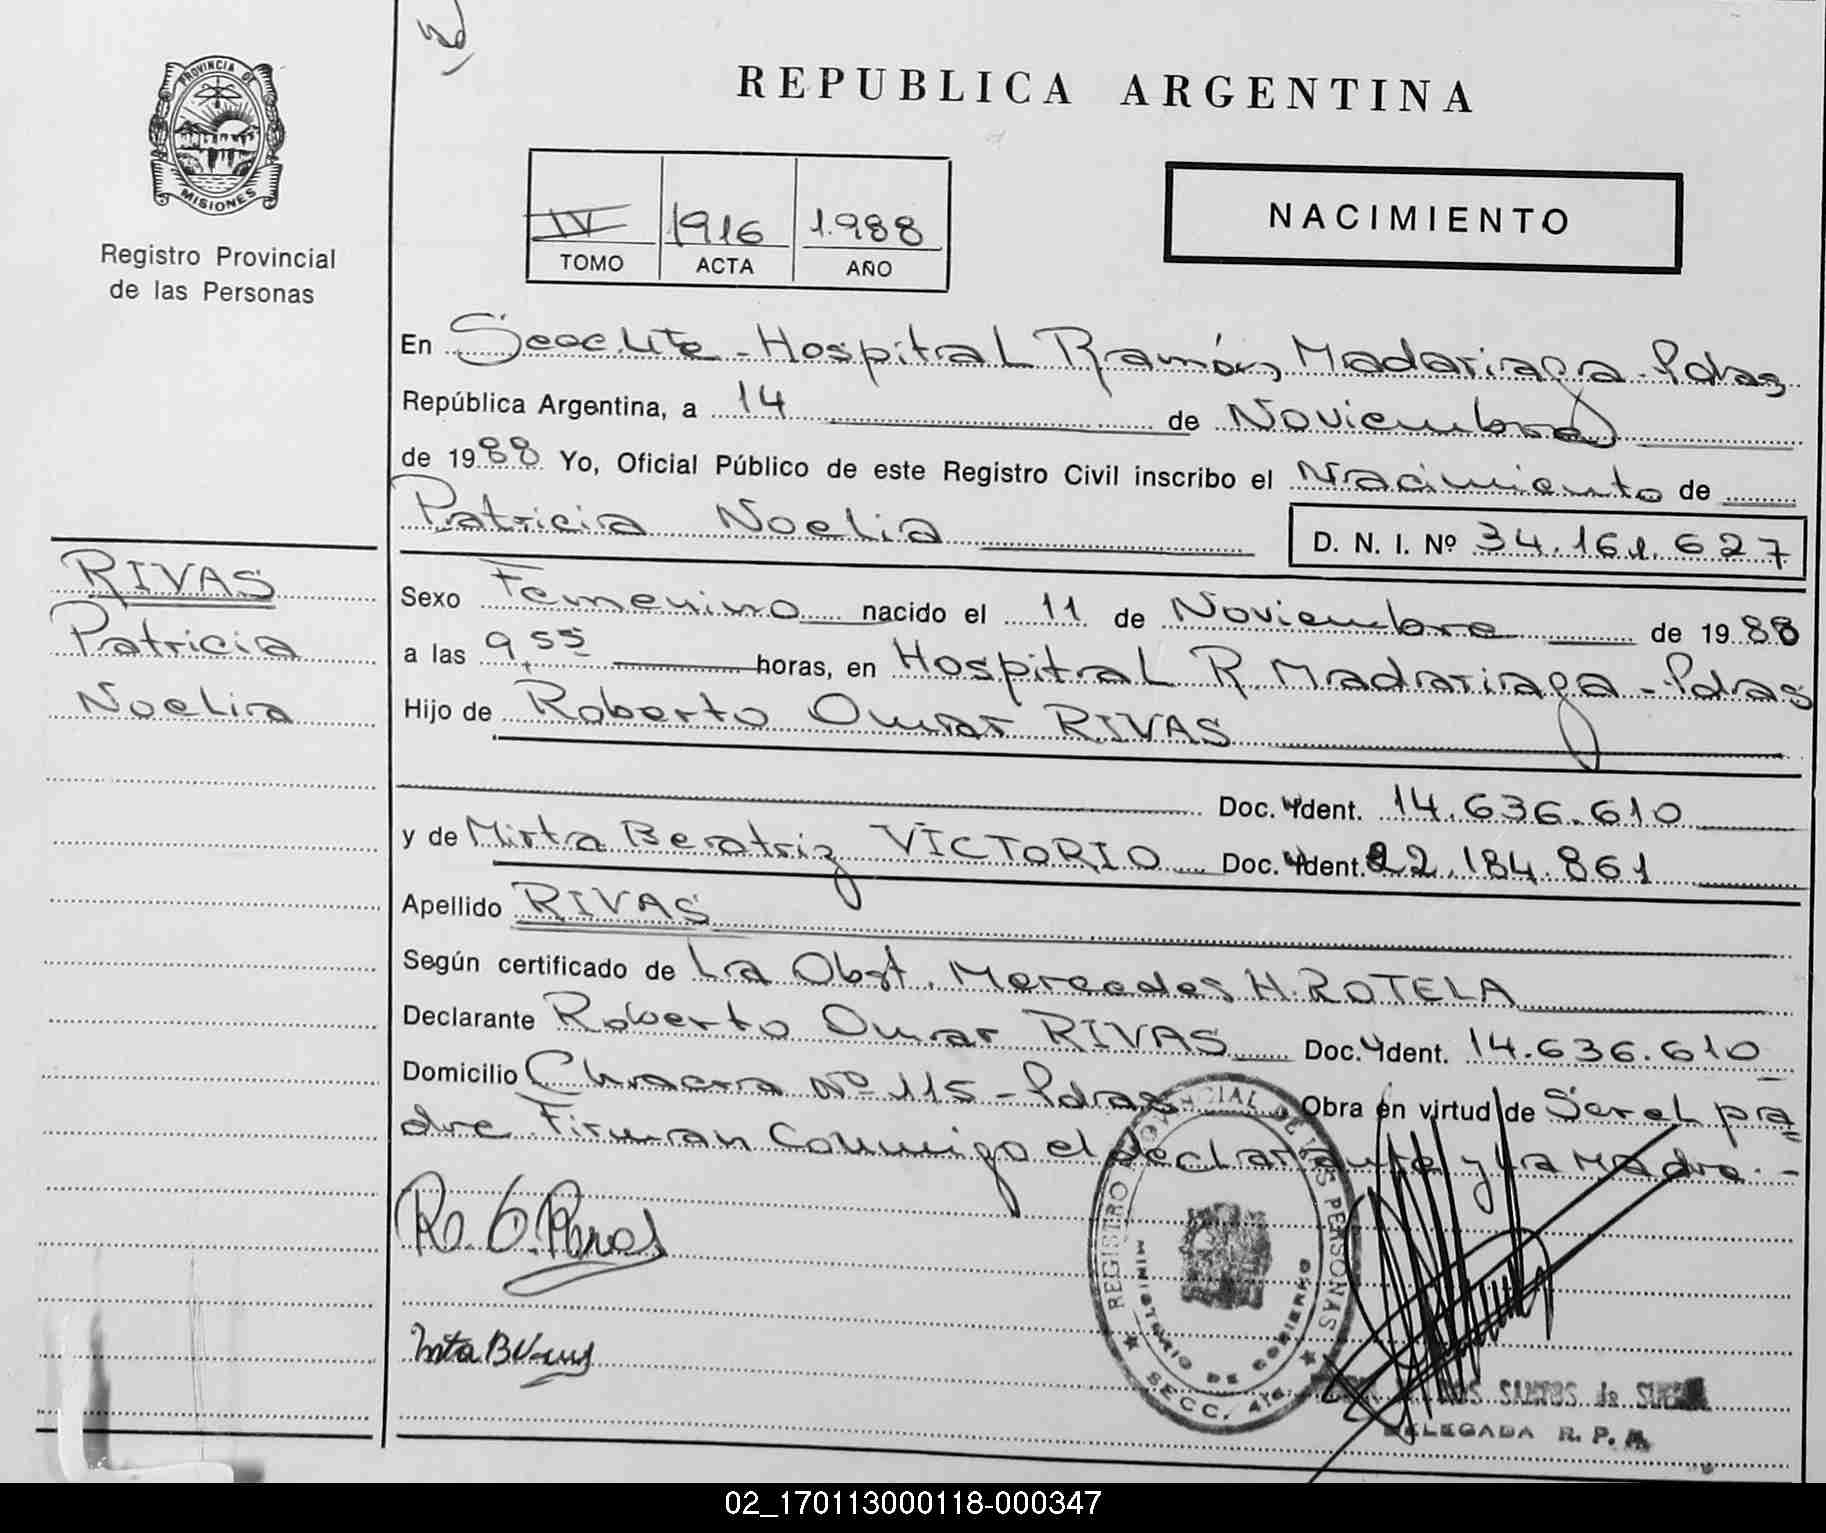 PROVINCIA DE
MISIONES
Registro Provincial
de las Personas
RIVAS
Patricia
Noelia
REPUBLICA ARGENTINA
IV 1916 1.988
TOMO ACTA AÑO
NACIMIENTO
En Secc. 4ta - Hospital Ramón Madariaga - Pdas
República Argentina, a 14 de Noviembre
de 1988 Yo, Oficial Público de este Registro Civil inscribo el Nacimiento de
Patricia Noelia D. N. I. Nº 34.161.627
Sexo Femenino nacido el 11 de Noviembre de 1988
a las 9,55 horas, en Hospital R. Madariaga - Pdas
Hijo de Roberto Omar RIVAS
Doc. Ident. 14.636.610
y de Mirta Beatriz VICTORIO Doc. Ident. 22.184.861
Apellido RIVAS
Según certificado de La Obst. Mercedes H. ROTELA
Declarante Roberto Omar RIVAS Doc. Ident. 14.636.610
Domicilio Chacra Nº 115 - Pdas Obra en virtud de Ser el pa=
dre Firman conmigo el declarante y la Madre.-
REGISTRO PROVINCIAL DE LAS PERSONAS
MINISTERIO DE GOBIERNO
SECC. 4ta
SANTOS de
DELEGADA R. P.
02_170113000118-000347